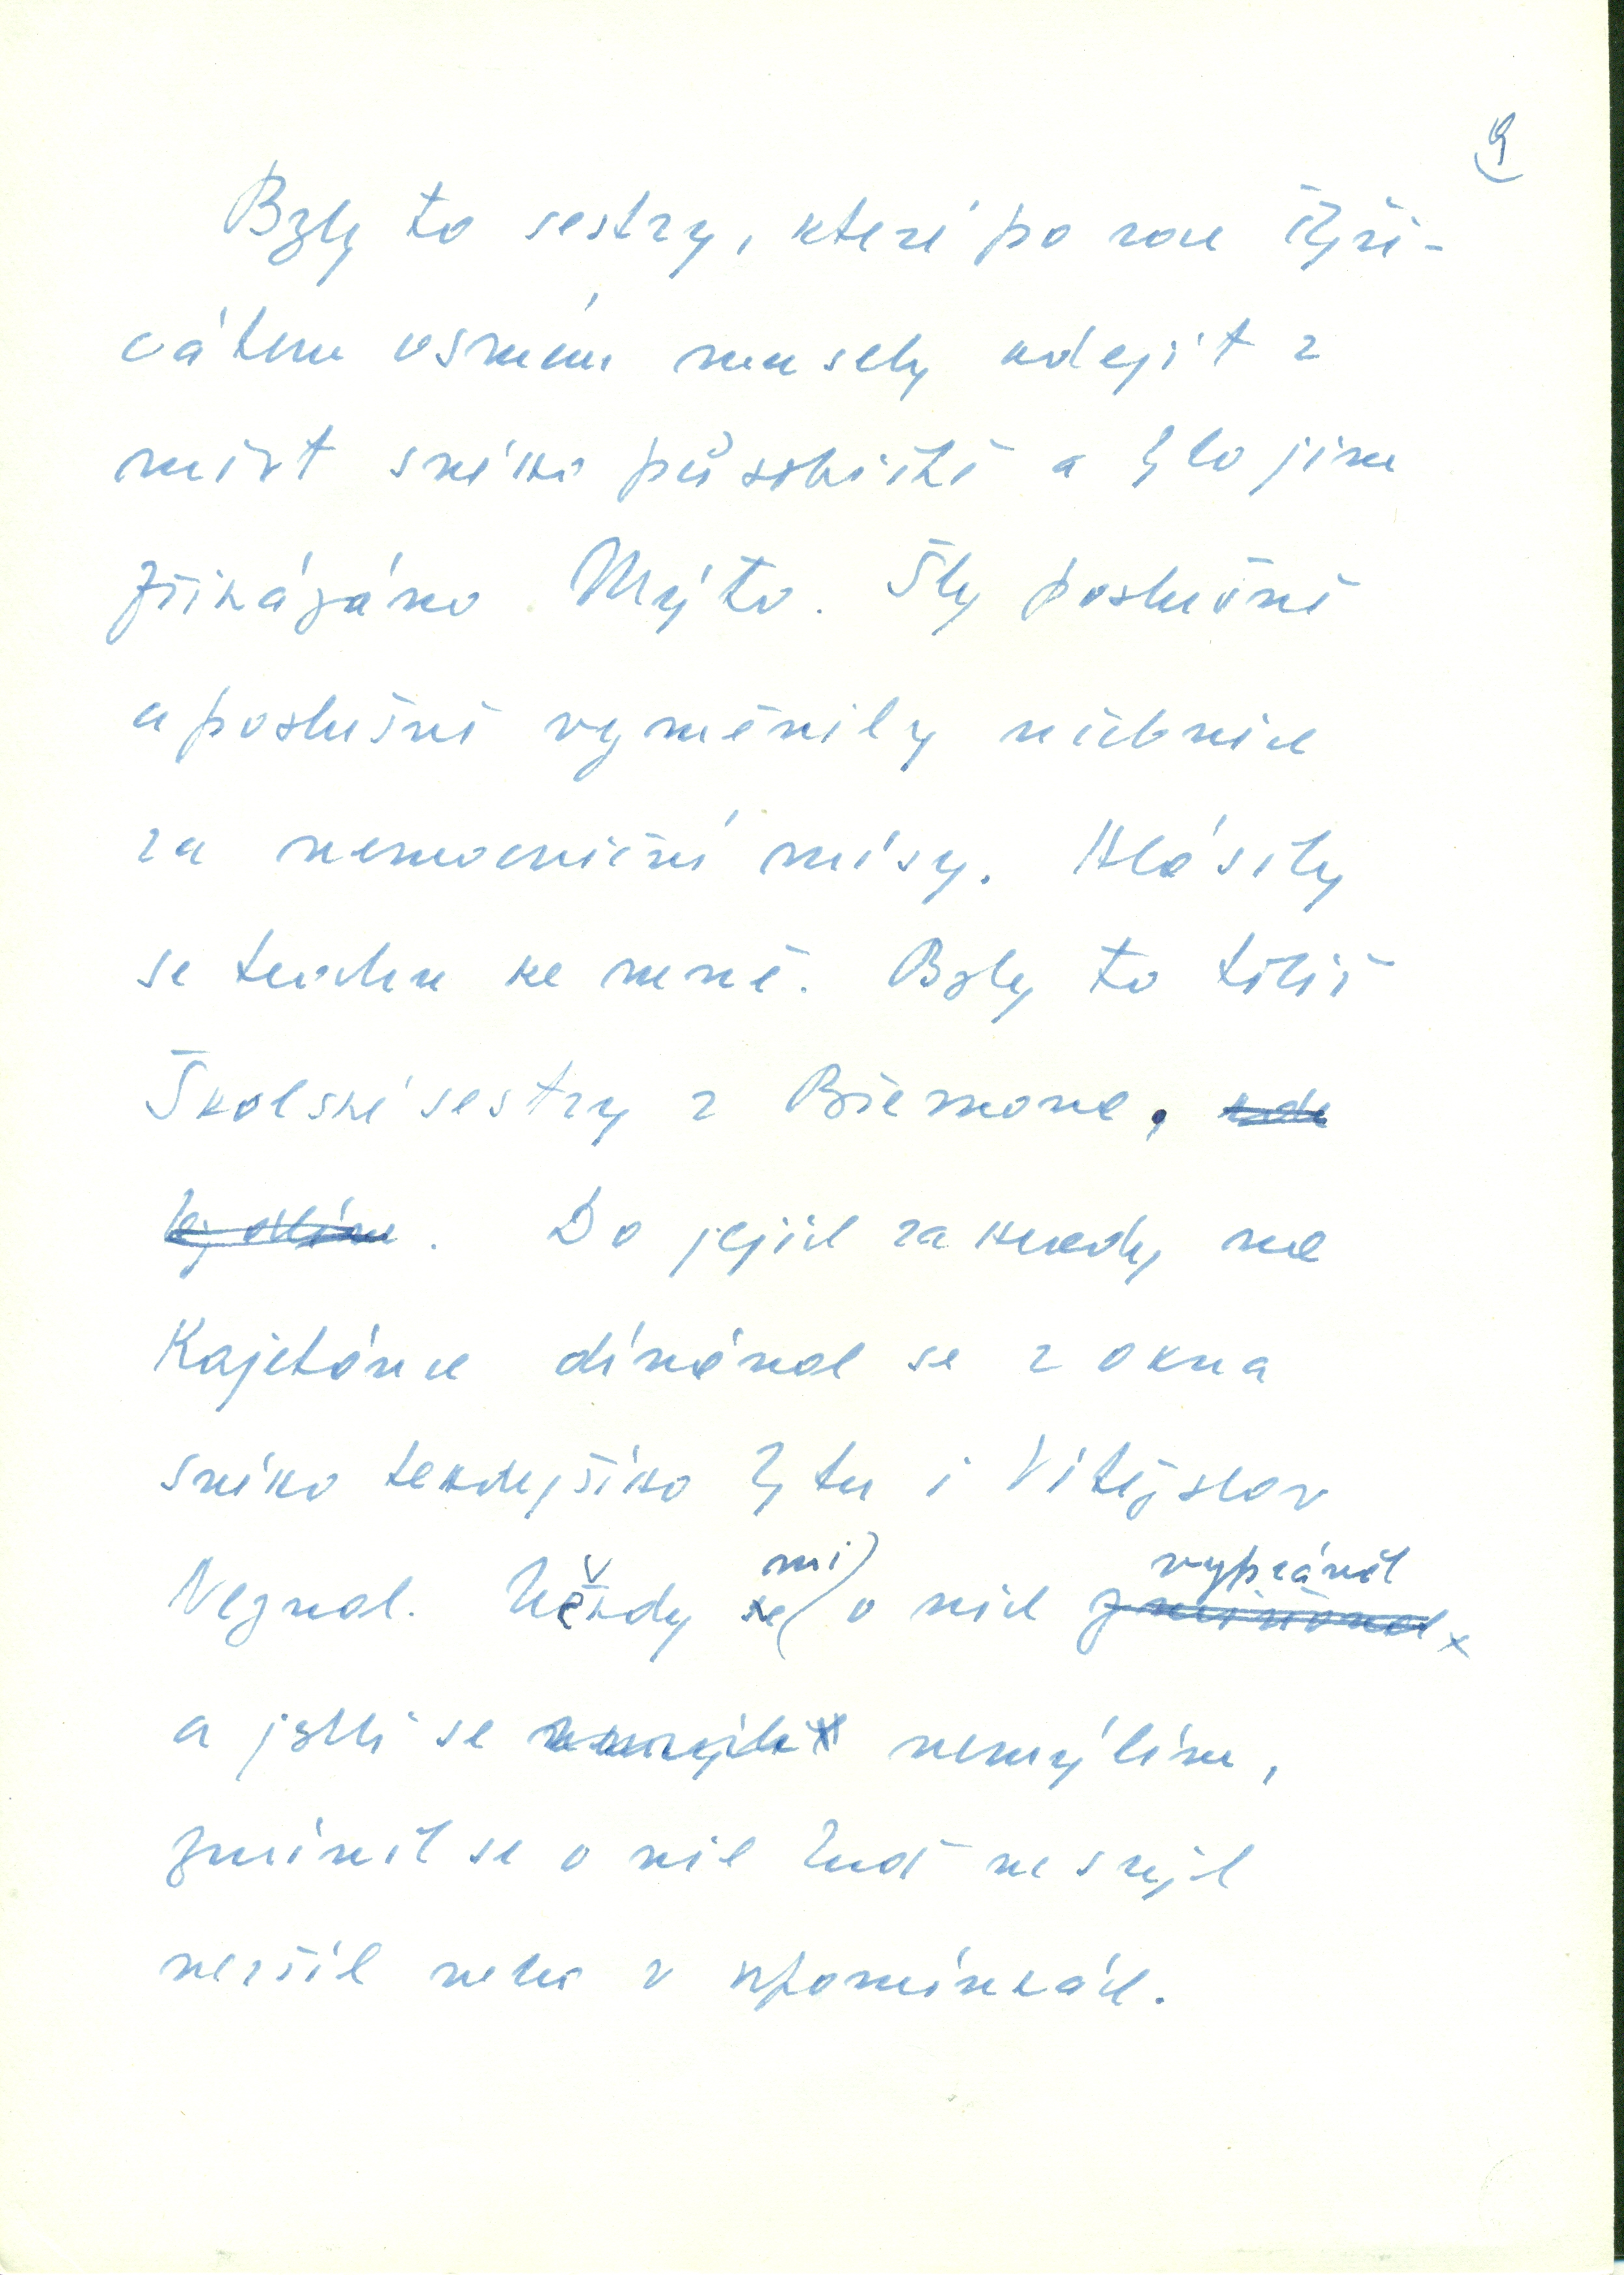 9
Byly to sestry, které po roce čtyři-
cátém osmém musely odejít z
míst svého působiště a bylo jim
přikázáno Mýto. Šly poslušně
a poslušně vyměnily učebnice
za nemocniční mísy. Hlásily
se trochu ke mně. Byly to totiž
Školské sestry z Břevnova, kde
bydlím. Do jejich zahrady na
Kajetánce díval se z okna
svého tehdejšího bytu i Vítězslav
Nezval. Někdy mi o nich vyprávěl
a jestli se nemýlím,
zmínil se o nich buď ve svých
verších nebo v vzpomínkách.